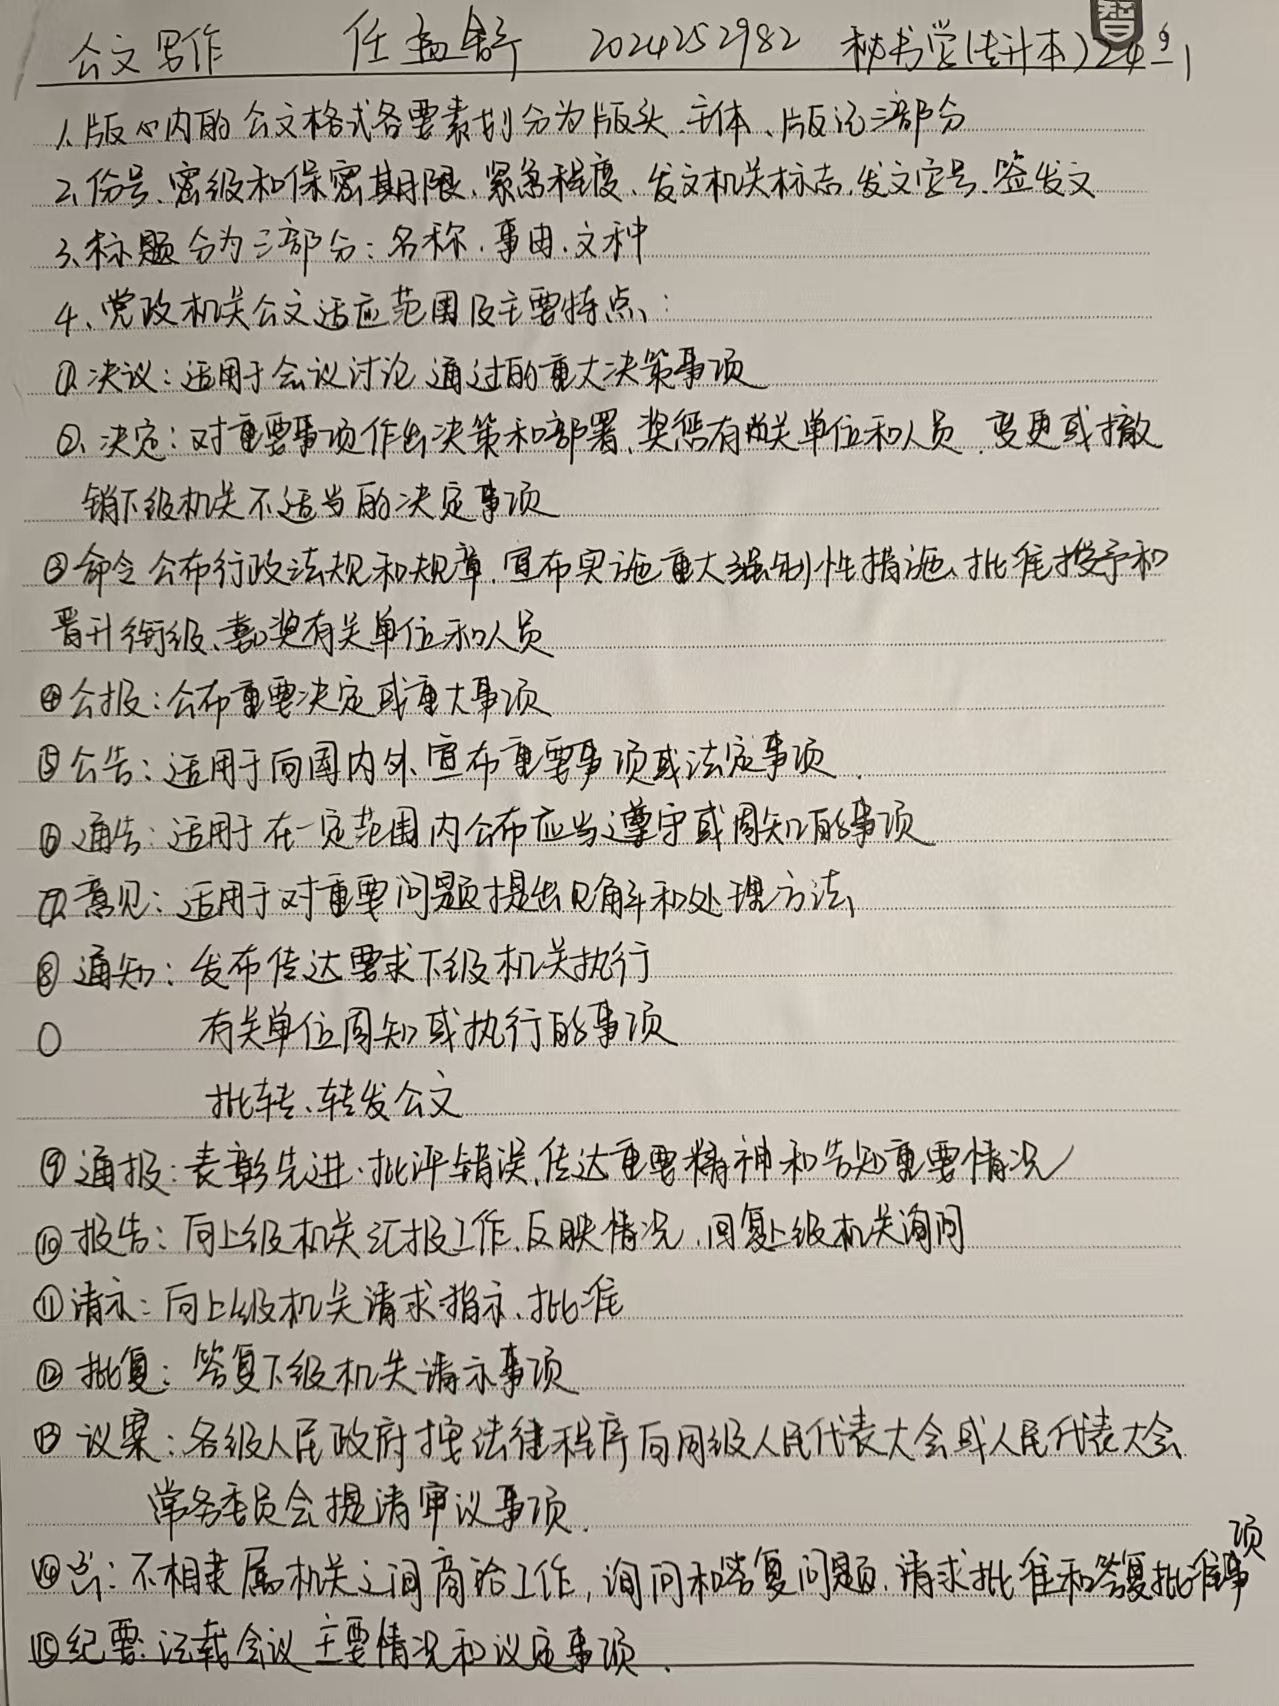 智
公文写作 任孟舒 2024252982 秘书学(专升本)24-1
1、版心内的公文格式各要素划分为版头、主体、版记三部分
2、份号、密级和保密期限、紧急程度、发文机关标志、发文字号、签发文
3、标题分为三部分：名称、事由、文种
4、党政机关公文适应范围及主要特点、：
①决议：适用于会议讨论通过的重大决策事项
②、决定：对重要事项作出决策和部署、奖惩有关单位和人员、变更或撤
销下级机关不适当的决定事项
③命令 公布行政法规和规章、宣布实施重大强制性措施、批准授予和
晋升衔级、嘉奖有关单位和人员
④公报：公布重要决定或重大事项
⑤公告：适用于向国内外宣布重要事项或法定事项.
⑥通告：适用于在一定范围内公布应当遵守或周知的事项
⑦意见：适用于对重要问题提出见解和处理方法、
⑧通知：发布传达要求下级机关执行
有关单位周知或执行的事项
批转、转发公文
⑨通报：表彰先进、批评错误、传达重要精神和告知重要情况
⑩报告：向上级机关汇报工作、反映情况、回复上级机关询问
⑪请示：向上级机关请求指示、批准
⑫批复：答复下级机关请示事项
⑬议案：各级人民政府按法律程序向同级人民代表大会或人民代表大会
常务委员会提请审议事项.
⑭函：不相隶属机关之间商洽工作，询问和答复问题、请求批准和答复批准事项
⑮纪要：记载会议主要情况和议定事项.